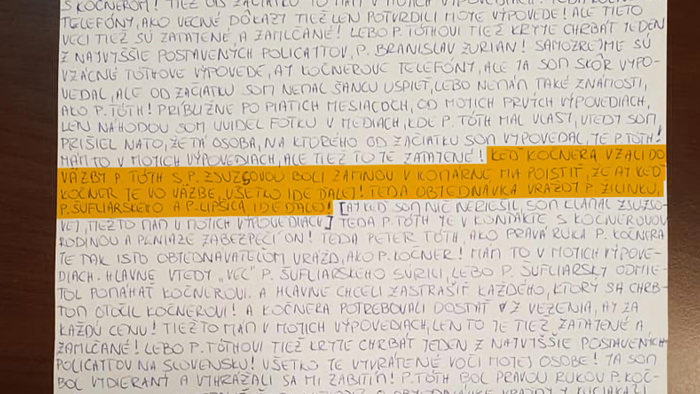 S KOČNEROM! TIEŽ OD ZAČIATKU TO MÁM V MOJICH VÝPOVEDIACH.
TELEFÓNY, AKO VECNÉ DÔKAZY TIEŽ LEN POTVRDILI MOJE VÝPOVEDE! ALE TIETO
VECI TIEŽ SÚ ZATAJENÉ A ZAMLČANÉ! LEBO P. TÓTHOVI TIEŽ KRYJE CHRBÁT JEDEN
Z NAJVYŠŠIE POSTAVENÝCH POLICAJTOV, P. BRANISLAV ZURIAN! SAMOZREJME SÚ
VZÁCNE TÓTHOVE VÝPOVEDE, AJ KOČNEROVE TELEFÓNY, ALE JA SOM SKÔR VYPO-
VEDAL, ALE OD ZAČIATKU SOM NEMAL ŠANCU USPIEŤ, LEBO NEMÁM TAKÉ ZNÁMOSTI,
AKO P. TÓTH! PRIBLIŽNE PO PIATICH MESIACOCH, OD MOJICH PRVÝCH VÝPOVEDIACH,
LEN NÁHODOU SOM UVIDEL FOTKU V MÉDIACH, KDE P. TÓTH MAL VLASY, VTEDY SOM
PRIŠIEL NATO, ŽE TÁ OSOBA, NA KTORÉHO OD ZAČIATKU SOM VYPOVEDAL, JE P. TÓTH!
MÁM TO V MOJICH VÝPOVEDIACH, ALE TIEŽ TO JE ZATAJENÉ! KEĎ KOČNERA VZALI DO
VÄZBY P. TÓTH S P. ZSUZSOVOU BOLI ZA MNOU V KOMÁRNE MA POISTIŤ, ŽE AJ KEĎ
KOČNER JE VO VÄZBE, VŠETKO IDE ĎALEJ! TEDA OBJEDNÁVKA VRAŽDY P. ŽILINKU,
P. ŠUFLIARSKEHO A P. LIPŠICA IDE ĎALEJ! [AJ KEĎ SOM NIČ NERIEŠIL, SOM KLAMAL ZSUZSO-
VEJ, TIEŽ TO MÁM V MOJICH VÝPOVEDIACH] TEDA P. TÓTH JE V KONTAKTE S KOČNEROVOU
RODINOU A PENIAZE ZABEZPEČÍ ON! TEDA PETER TÓTH, AKO PRAVÁ RUKA P. KOČNERA
JE TAK ISTO OBJEDNÁVATEĽOM VRAŽD, AKO P. KOČNER! MÁM TO V MOJICH VÝPOVE-
DIACH. HLAVNE VTEDY „VEC" P. ŠUFLIARSKEHO SÚRILI, LEBO P. ŠUFLIARSKY ODMIE-
TOL POMÁHAŤ KOČNEROVI. A HLAVNE CHCELI ZASTRAŠIŤ KAŽDÉHO, KTORÝ SA CHRB-
TOM OTOČIL KOČNEROVI! A KOČNERA POTREBOVALI DOSTAŤ Z VEZENIA, AJ ZA
KAŽDÚ CENU! TIEŽ TO MÁM V MOJICH VÝPOVEDIACH, LEN TO JE TIEŽ ZATAJENÉ A
ZAMLČANÉ! LEBO P. TÓTHOVI TIEŽ KRYJE CHRBÁT JEDEN Z NAJVYŠŠIE POSTAVENÝCH
POLICAJTOV NA SLOVENSKU! VŠETKO JE VYVRÁTENÉ VOČI MOJEJ OSOBE! JA SOM
BOL VYDIERANÝ A VYHRÁŽALI SA MI ZABITÍM! P. TÓTH BOL PRAVOU RUKOU P. KOČ-